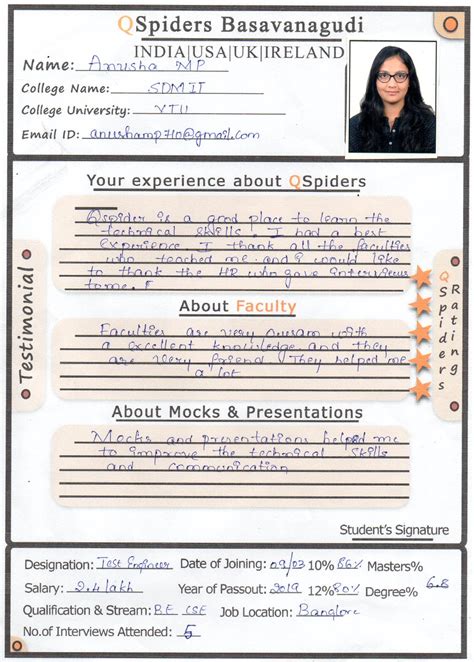 QSpiders Basavanagudi
INDIA|USA|UK|IRELAND
Name: Anusha MP
College Name: SDMIT
College University: VTU
Email ID: anushamp710@gmail.com
Your experience about QSpiders
Qspider is a good place to learn the
technical skills. I had a best
Experience. I thank all the faculties
who teached me and I would like
to thank the HR who gave interviews
to me.
About Faculty
Faculties are very with
a excellent knowledge and they
are very friend They helped me
a lot
About Mocks & Presentations
Mocks and presentations helped me
to improve the technical skills
and communication
Testimonial
QSpiders
Rating
Student's Signature
Designation: Test Engineer Date of Joining: 09/03 10% 86% Masters%
Salary: 2.4 lakh Year of Passout: 2019 12% 80% Degree% 6.8
Qualification & Stream: B.E CSE Job Location: Banglore
No.of Interviews Attended: 5